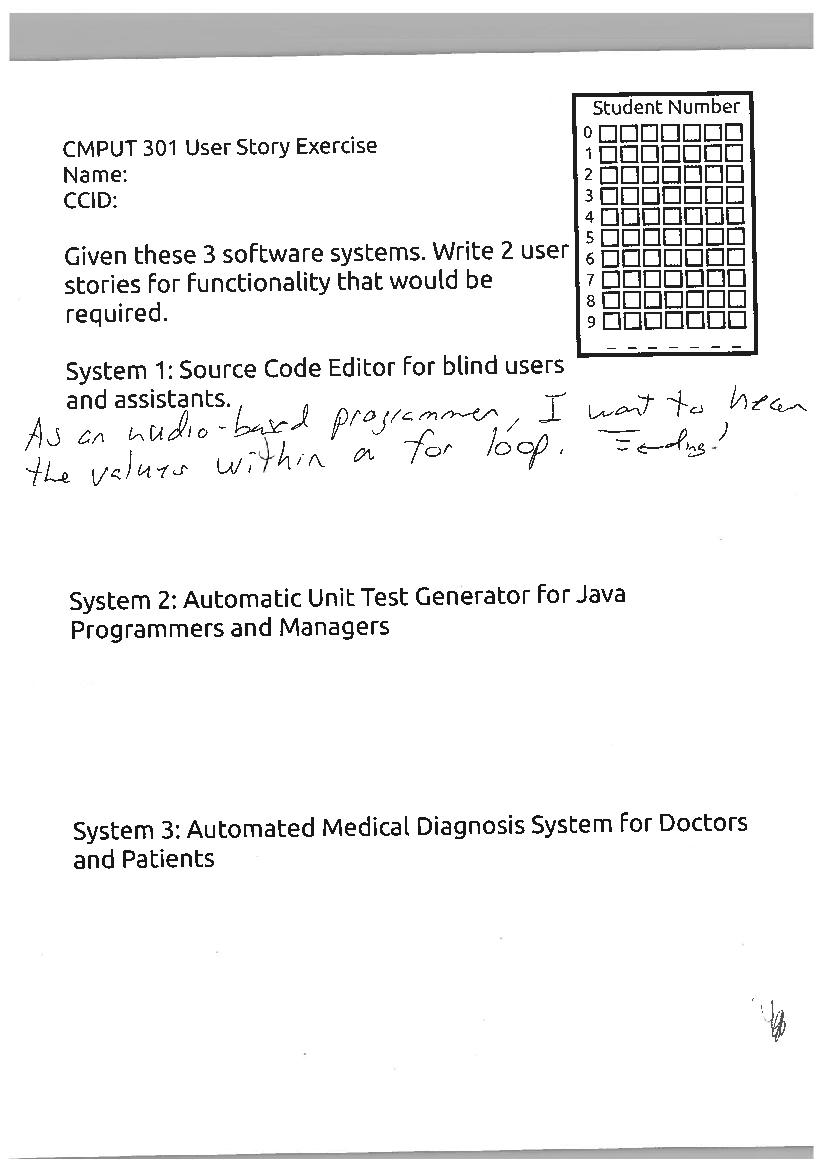 Student Number
0
1
2
3
4
5
6
7
8
9
CMPUT 301 User Story Exercise
Name:
CCID:
Given these 3 software systems. Write 2 user
stories for functionality that would be
required.
System 1: Source Code Editor for blind users
and assistants.
As an audio-based programmer, I want to hear
the values within a for loop.
System 2: Automatic Unit Test Generator for Java
Programmers and Managers
System 3: Automated Medical Diagnosis System for Doctors
and Patients